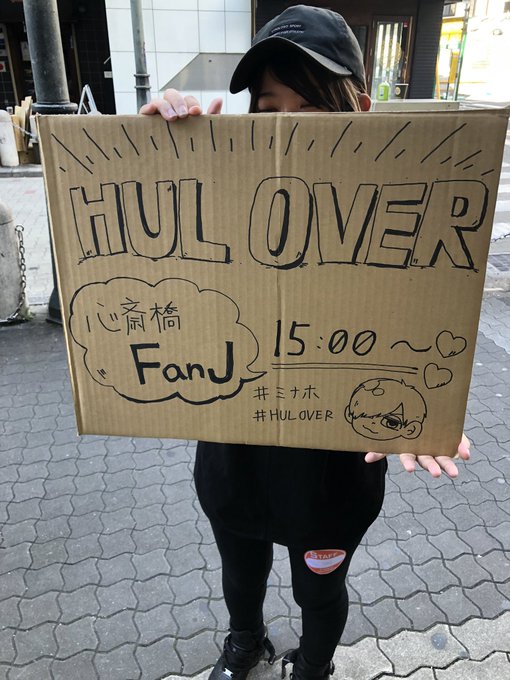 HUL OVER
心斎橋
FanJ
15:00 ~
#ミナホ
#HULOVER
STAFF